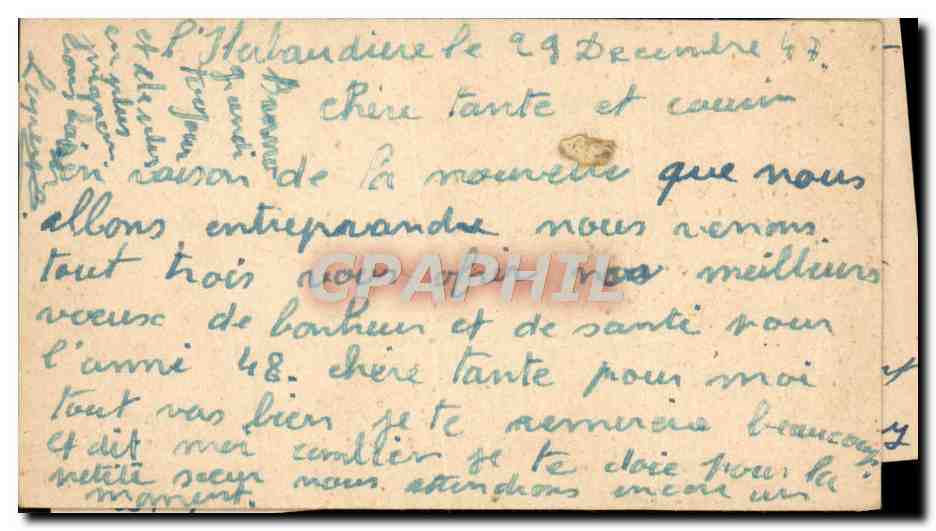 l'Herbaudiere le 29 Decembre 47.
chère tante et cousin
en raison de la nouvelle que nous
allons entreprandre nous venons
tout trois vous ofrir nos meilleurs
voeux de bonheur et de santé pour
l'anné 48. chère tante pour moi
tout vas bien je te remercie beaucoup
et dit moi combien je te doie pour la
petite sœur nous attendrons encore un
moment.
grandi
toujour
et de plus
en plus
mignon
CPAPHIL